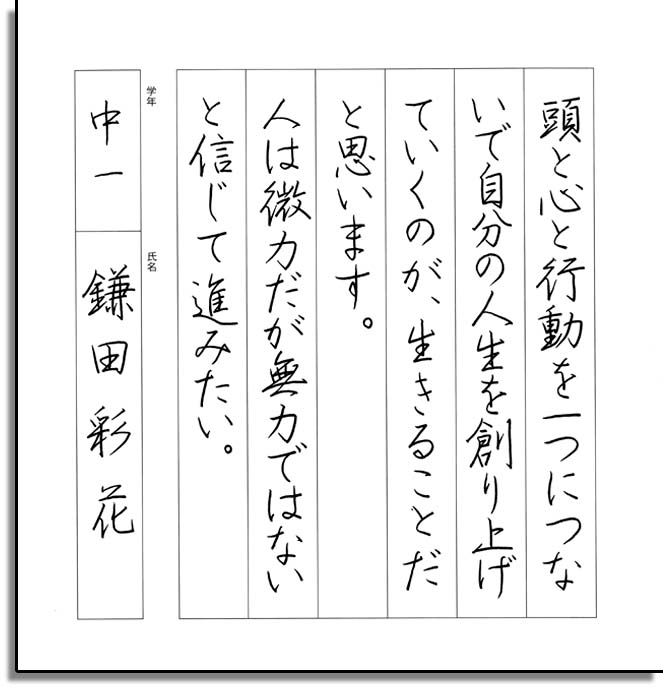 頭と心と行動を一つにつな
いで自分の人生を創り上げ
ていくのが、生きることだ
と思います。
人は微力だが無力ではない
と信じて進みたい。
学年
中一
氏名
鎌田彩花